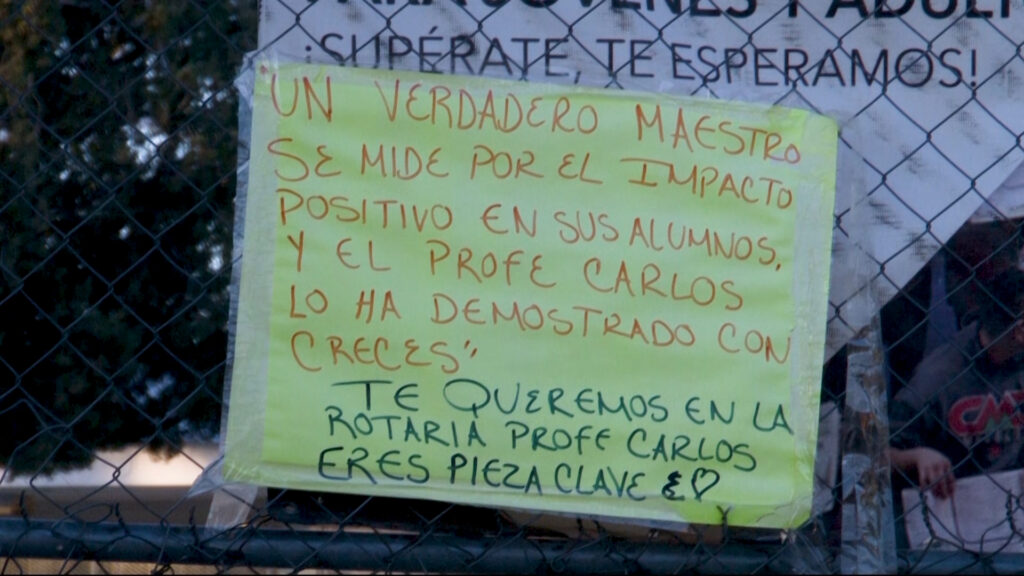 PARA JÓVENES Y ADUL
¡SUPÉRATE, TE ESPERAMOS!
"UN VERDADERO MAESTRO
SE MIDE POR EL IMPACTO
POSITIVO EN SUS ALUMNOS,
Y EL PROFE CARLOS
LO HA DEMOSTRADO CON
CRECES"
TE QUEREMOS EN LA
ROTARIA PROFE CARLOS
ERES PIEZA CLAVE &♡